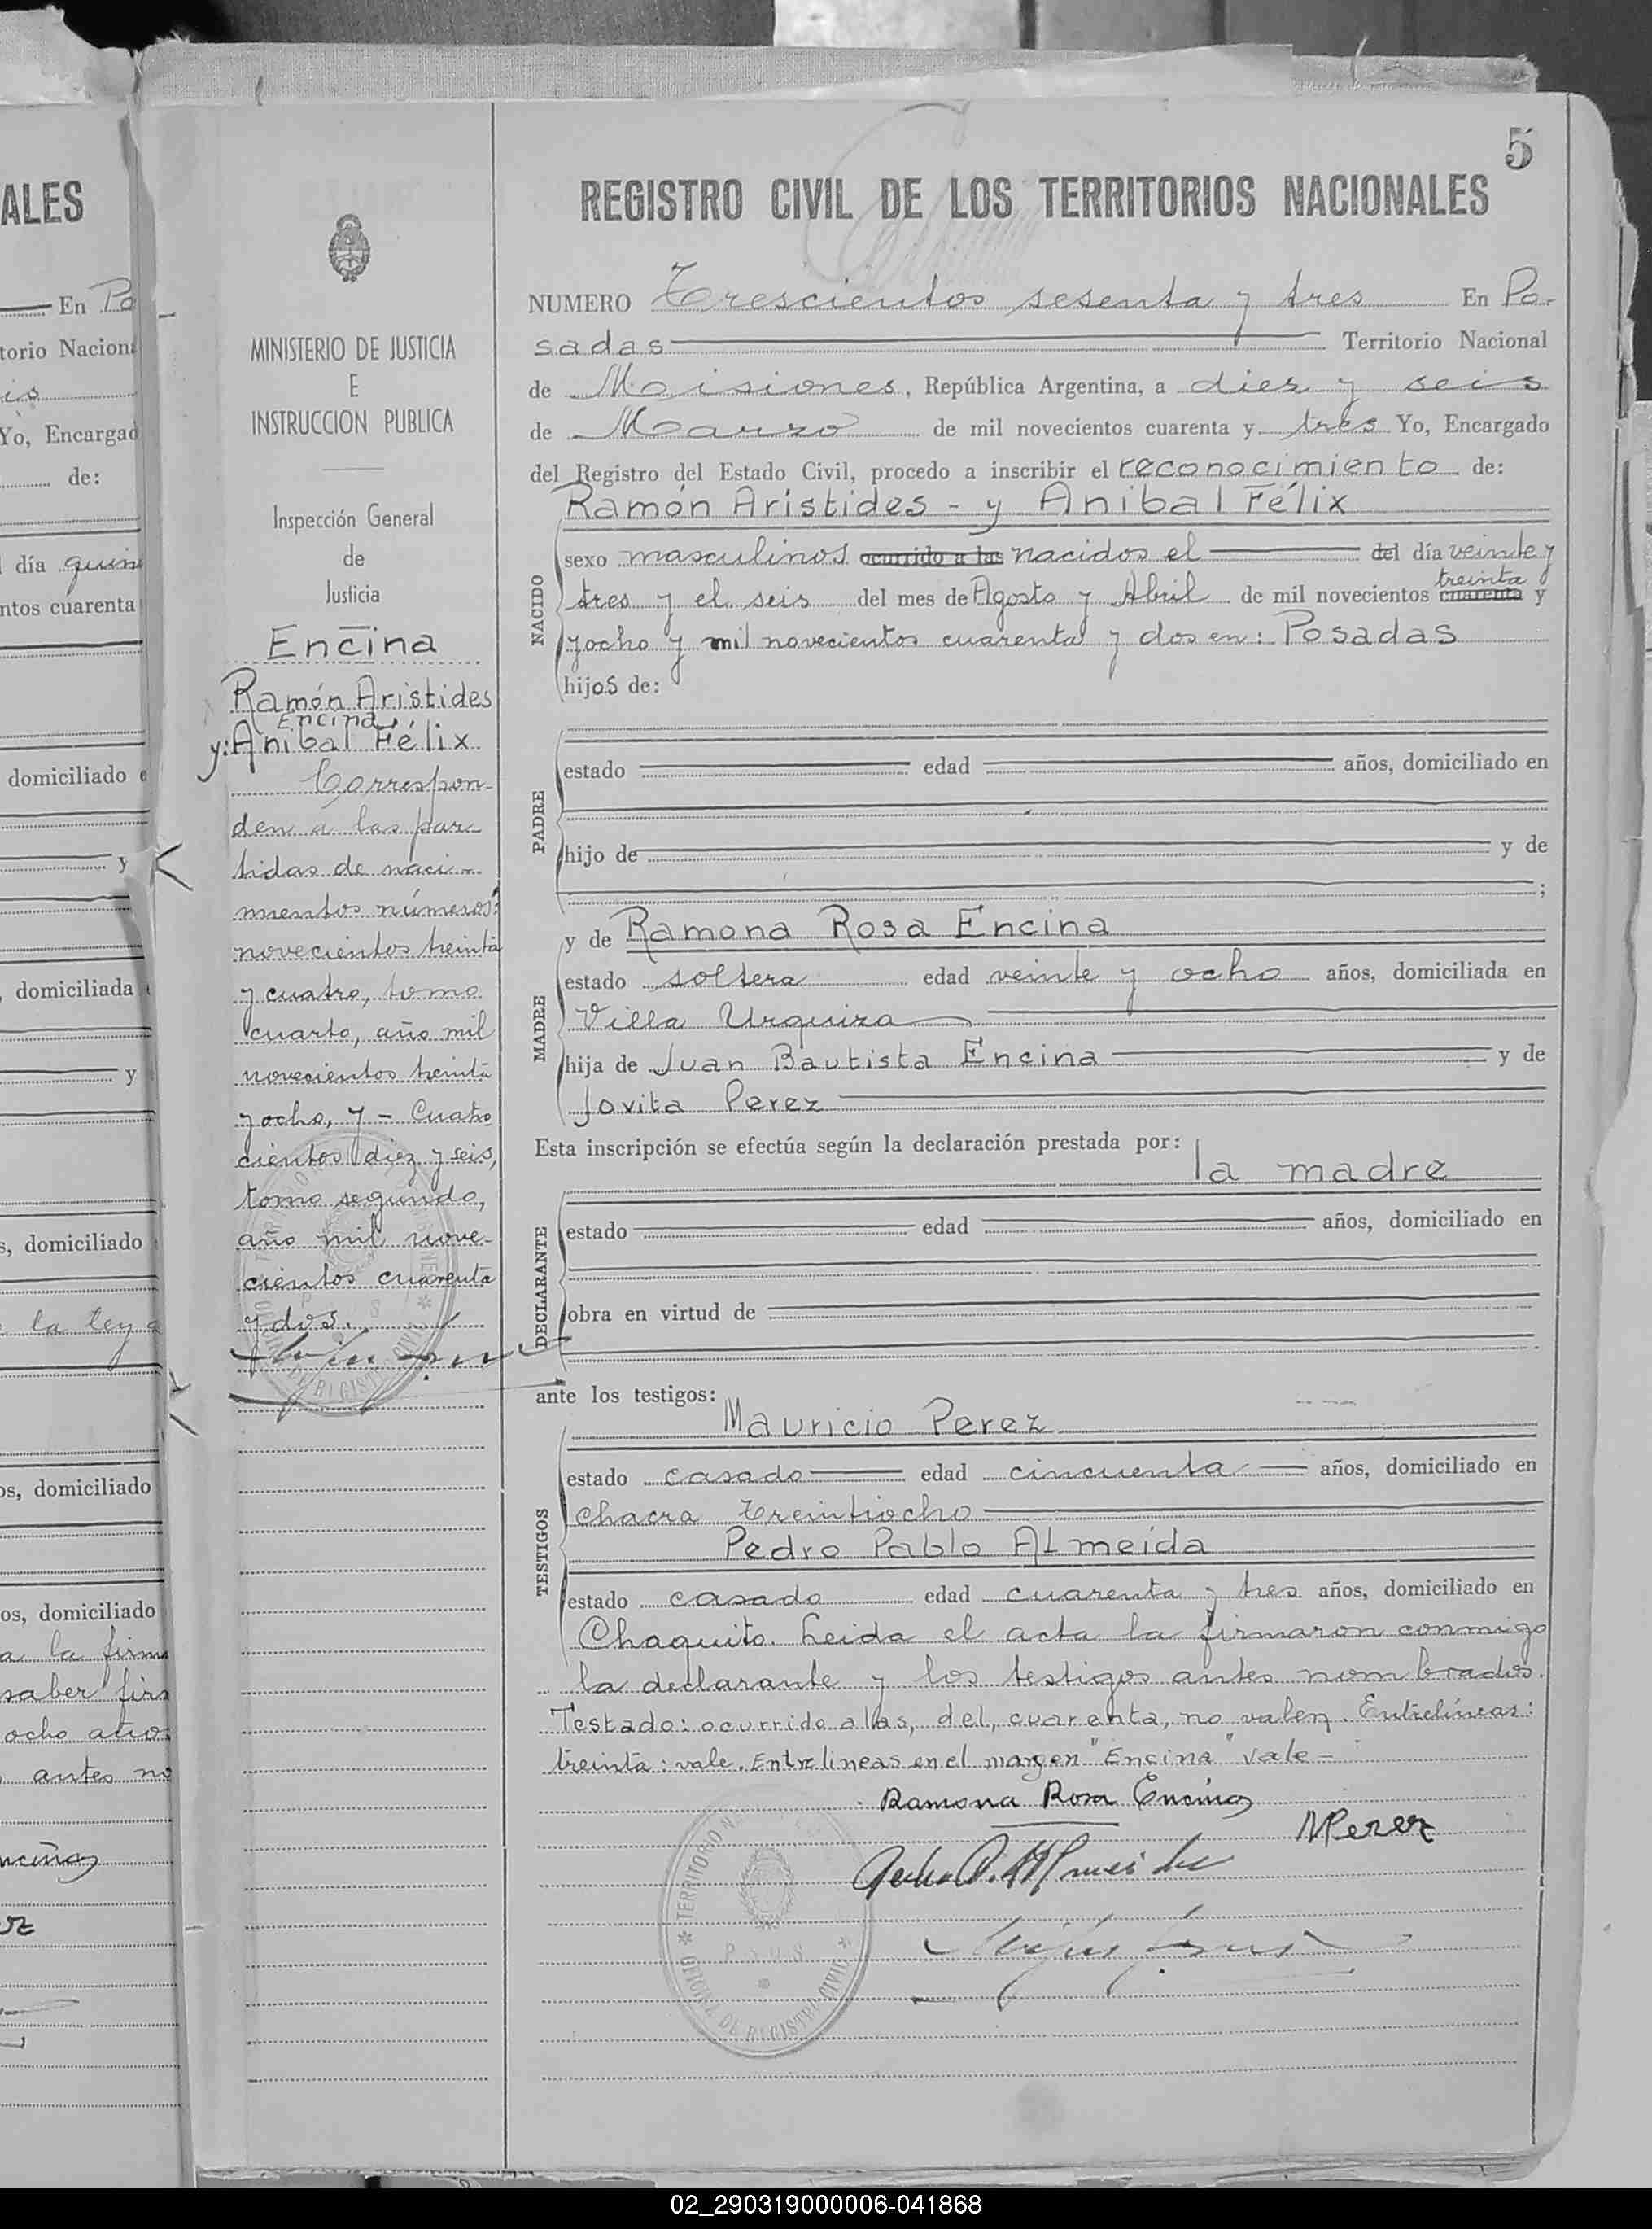 5
REGISTRO CIVIL DE LOS TERRITORIOS NACIONALES
MINISTERIO DE JUSTICIA
E
INSTRUCCION PUBLICA
Inspección General
de
Justicia
Encina
Ramón Aristides
Encina
y: Anibal Félix
Correspon-
den a las par-
tidas de naci-
mientos números:
novecientos treinta
y cuatro, tomo
cuarto, año mil
novecientos treinta
y ocho, y - Cuatro
cientos diez y seis,
tomo segundo,
año mil nove-
cientos cuarenta
y dos.
NUMERO Trescientos sesenta y tres En Po-
sadas Territorio Nacional
de Misiones, República Argentina, a diez y seis
de Marzo de mil novecientos cuarenta y tres Yo, Encargado
del Registro del Estado Civil, procedo a inscribir el reconocimiento de:
Ramón Aristides - y Anibal Félix
NACIDO
sexo masculinos ocurrido a las nacidos el del día veinte y
treinta
tres y el seis del mes de Agosto y Abril de mil novecientos cuarenta y
y ocho y mil novecientos cuarenta y dos en: Posadas
hijos de:
PADRE
estado edad años, domiciliado en
hijo de y de
;
MADRE
y de Ramona Rosa Encina
estado soltera edad veinte y ocho años, domiciliada en
Villa Urquiza
hija de Juan Bautista Encina y de
Jovita Perez
Esta inscripción se efectúa según la declaración prestada por:
la madre
DECLARANTE
estado edad años, domiciliado en
obra en virtud de
ante los testigos:
Mauricio Perez
TESTIGOS
estado casado edad cincuenta años, domiciliado en
Chacra Treintiocho
Pedro Pablo ALmeida
estado casado edad cuarenta y tres años, domiciliado en
Chaquito. Leida el acta la firmaron conmigo
la declarante y los testigos antes nombrados.
Testado: ocurrido a las, del, cuarenta, no valen. Entrelíneas:
treinta: vale. Entrelineas en el margen "Encina" Vale -
Ramona Rosa Encina
MPerez
Pedro P. Almeida
TERRITORIO
OFICINA DE REGISTRO CIVIL
ALES
En Po
torio Nacion
is
Yo, Encargad
de:
día quin
ntos cuarenta
domiciliado
y
, domiciliada
y
s, domiciliado
la ley
os, domiciliado
os, domiciliado
a la firma
saber fir
ocho año
antes no
02_290319000006-041868